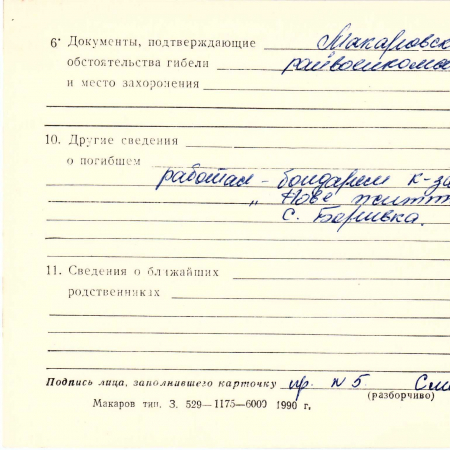 6· Документы, подтверждающие Макаровск
обстоятельства гибели райвоенкома
и место захоронения
10. Другие сведения
о погибшем
работал - бондарем к-за
„ Нове життя
с. Борывка.
11. Сведения о ближайших
родственниках
Подпись лица, заполнившего карточку пр. N 5. Сми
(разборчиво)
Макаров тип. З. 529—1175—6000 1990 г,